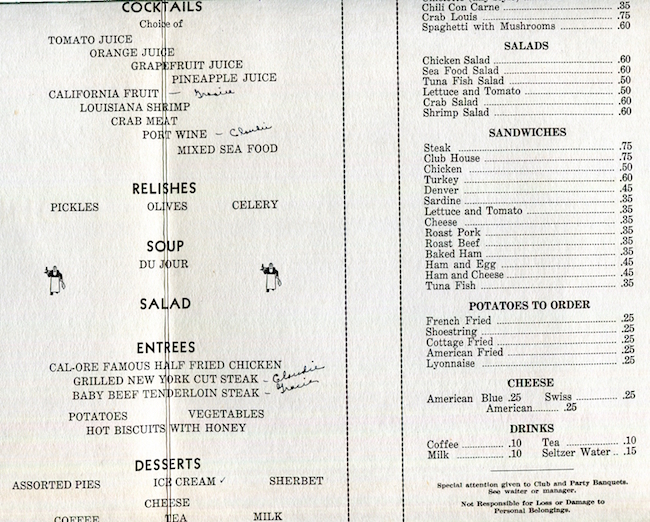 COCKTAILS
Choice of
TOMATO JUICE
ORANGE JUICE
GRAPEFRUIT JUICE
PINEAPPLE JUICE
CALIFORNIA FRUIT - Gracie
LOUISIANA SHRIMP
CRAB MEAT
PORT WINE - Claudie
MIXED SEA FOOD
RELISHES
PICKLES OLIVES CELERY
SOUP
DU JOUR
SALAD
ENTREES
CAL-ORE FAMOUS HALF FRIED CHICKEN
GRILLED NEW YORK CUT STEAK - Claudie
BABY BEEF TENDERLOIN STEAK - Gracie
POTATOES VEGETABLES
HOT BISCUITS WITH HONEY
DESSERTS
ASSORTED PIES ICE CREAM ✓ SHERBET
CHEESE
COFFEE TEA MILK
Chili Con Carne .35
Crab Louis .75
Spaghetti with Mushrooms .60
SALADS
Chicken Salad .60
Sea Food Salad .60
Tuna Fish Salad .50
Lettuce and Tomato .50
Crab Salad .60
Shrimp Salad .60
SANDWICHES
Steak .75
Club House .75
Chicken .50
Turkey .60
Denver .45
Sardine .35
Lettuce and Tomato .35
Cheese .35
Roast Pork .35
Roast Beef .35
Baked Ham .35
Ham and Egg .45
Ham and Cheese .45
Tuna Fish .35
POTATOES TO ORDER
French Fried .25
Shoestring .25
Cottage Fried .25
American Fried .25
Lyonnaise .25
CHEESE
American Blue .25 Swiss .25
American .25
DRINKS
Coffee .10 Tea .10
Milk .10 Seltzer Water .15
Special attention given to Club and Party Banquets.
See waiter or manager.
Not Responsible for Loss or Damage to
Personal Belongings.